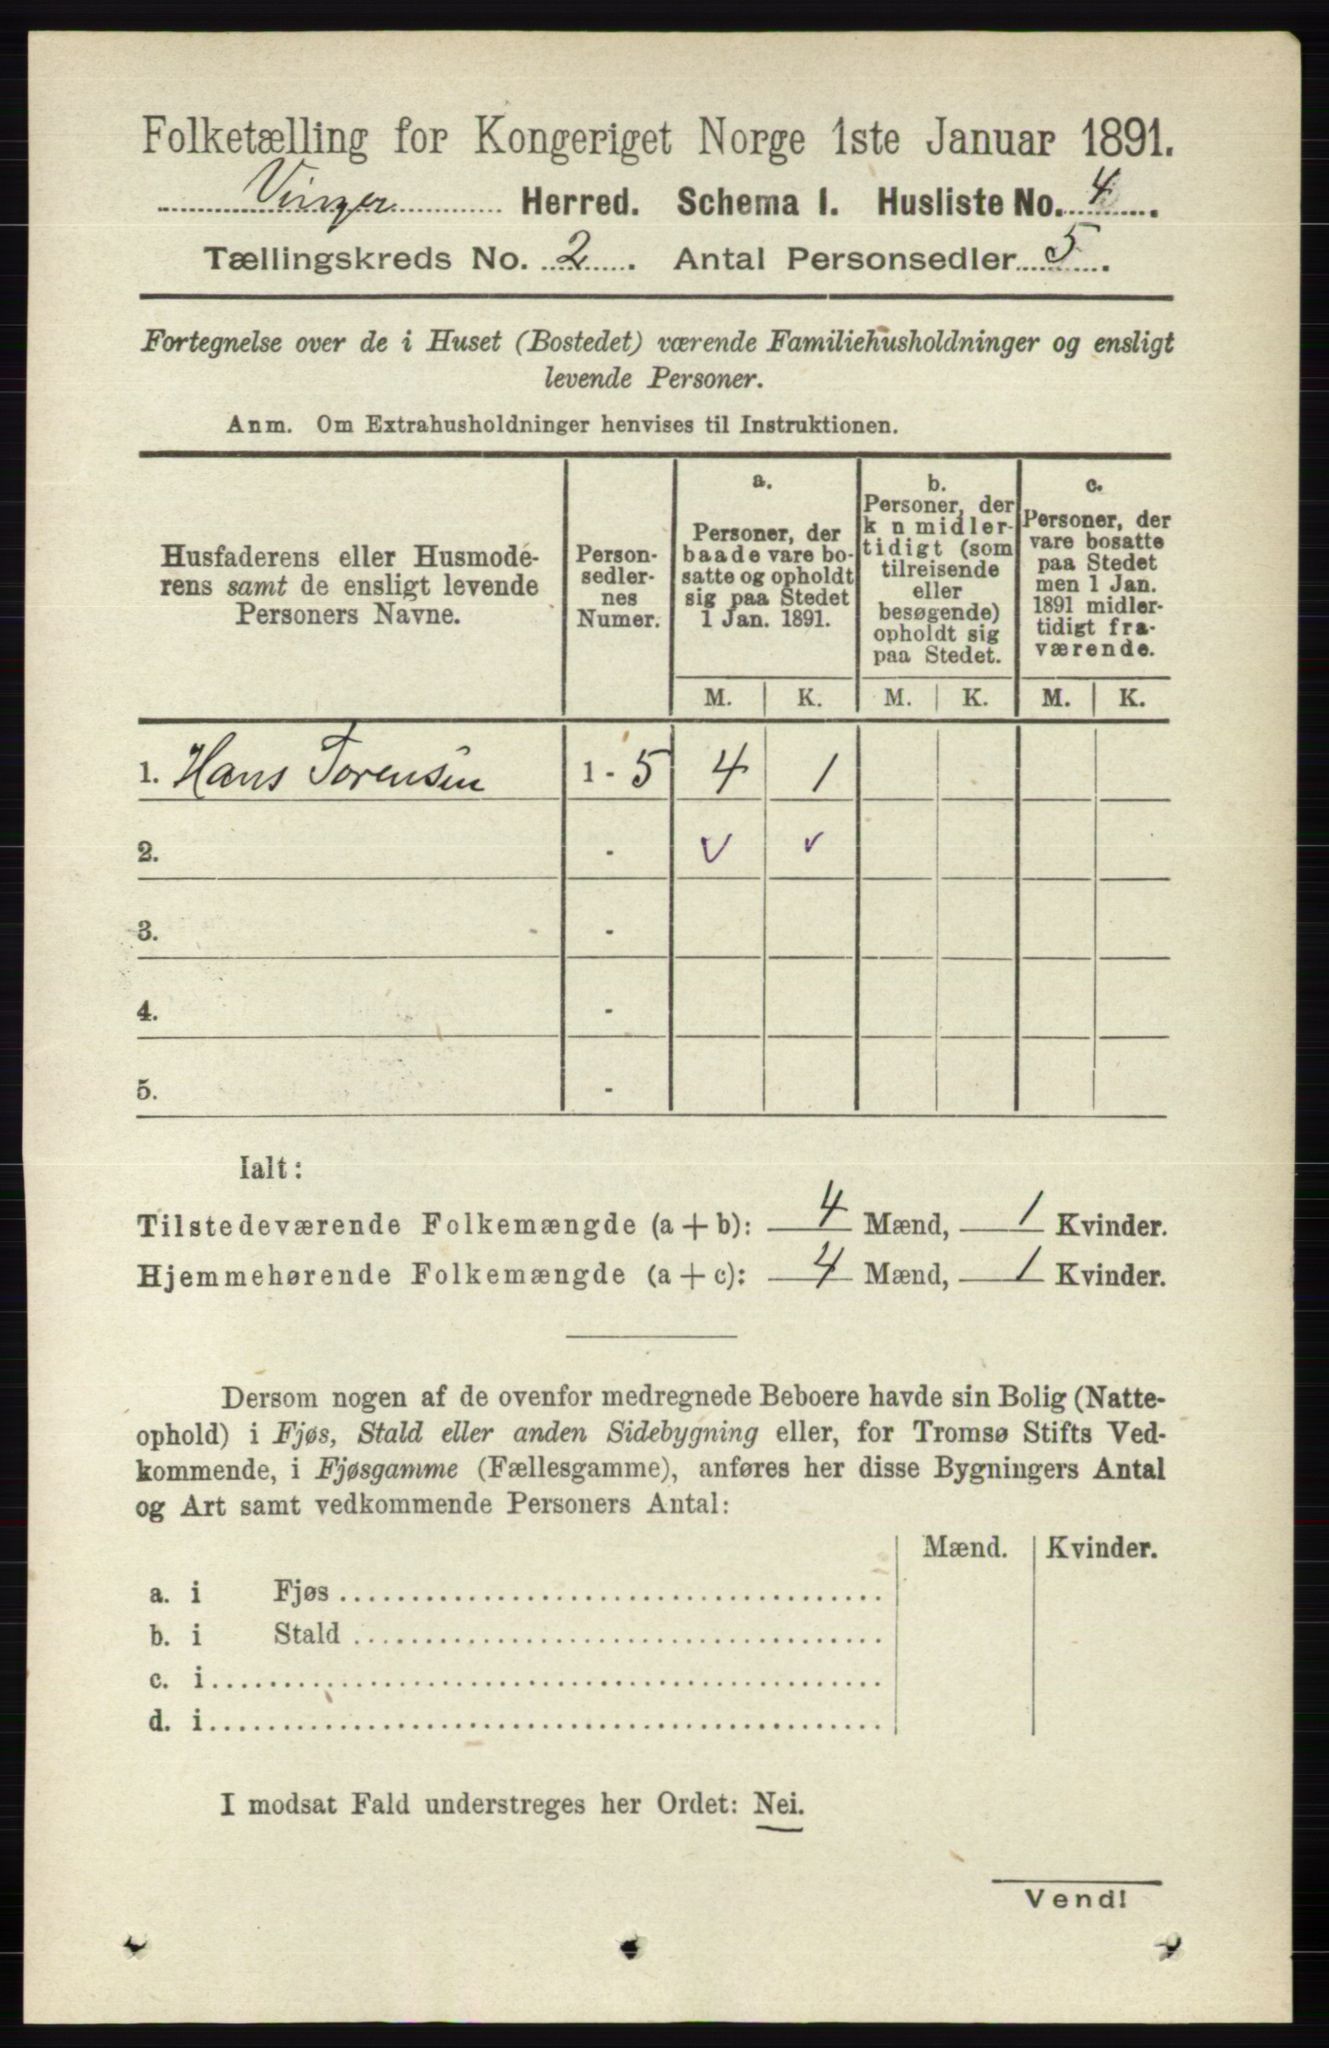 Folketælling for Kongeriget Norge 1ste Januar 1891.
Vinger Herred. Schema 1. Husliste No. 4.
Tællingskreds No. 2. Antal Personsedler 5.
Fortegnelse over de i Huset (Bostedet) værende Familiehusholdninger og ensligt
levende Personer.
Anm. Om Extrahusholdninger henvises til Instruktionen.
Husfaderens eller Husmode-
rens samt de ensligt levende
Personers Navne.
Person-
sedler-
nes
Numer.
a.
Personer, der
baade vare bo-
satte og opholdt
sig paa Stedet
1 Jan. 1891.
b.
Personer, der
k n midler-
tidigt (som
tilreisende
eller
besøgende)
opholdt sig
paa Stedet.
c.
Personer, der
vare bosatte
paa Stedet
men 1 Jan.
1891 midler-
tidigt fra-
værende.
M. K. M. K. M. K.
1. Hans Torensen 1 - 5 4 1
2. - v v
3. -
4. -
5. -
Ialt:
Tilstedeværende Folkemængde (a + b): 4 Mænd, 1 Kvinder.
Hjemmehørende Folkemængde (a + c): 4 Mænd, 1 Kvinder.
Dersom nogen af de ovenfor medregnede Beboere havde sin Bolig (Natte-
ophold) i Fjøs, Stald eller anden Sidebygning eller, for Tromsø Stifts Ved-
kommende, i Fjøsgamme (Fællesgamme), anføres her disse Bygningers Antal
og Art samt vedkommende Personers Antal:
Mænd. Kvinder.
a. i Fjøs
b. i Stald
c. i
d. i
I modsat Fald understreges her Ordet: Nei.
Vend!